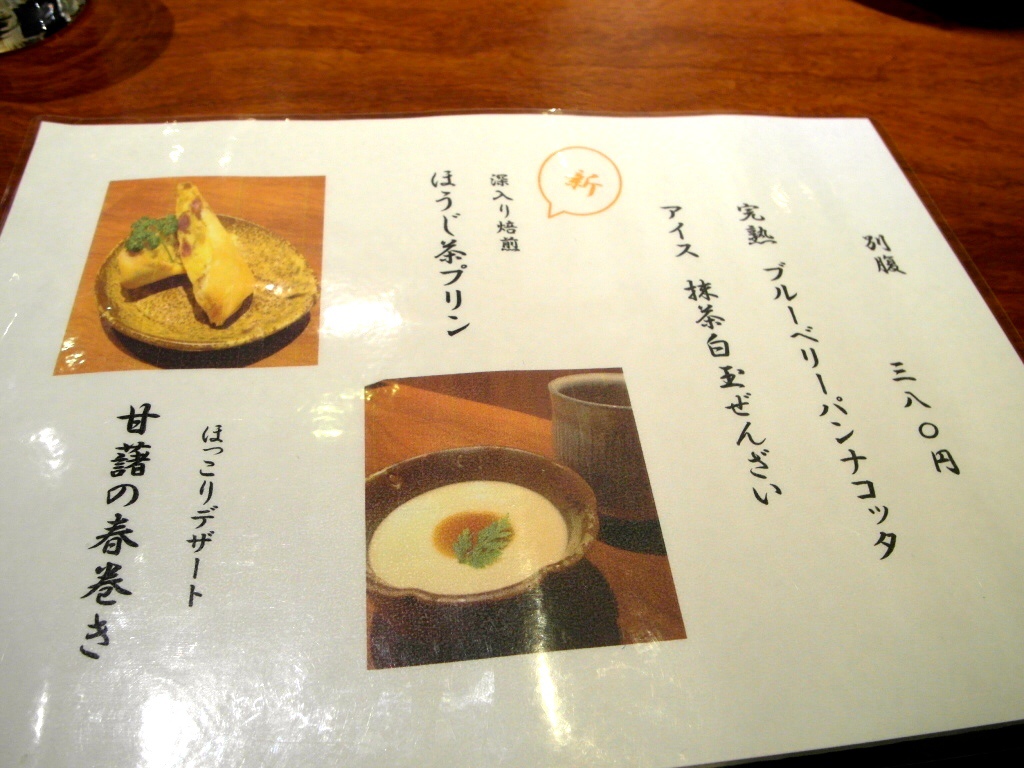 別腹 三八〇円
完熟 ブルーベリーパンナコッタ
アイス 抹茶白玉ぜんざい
新
深入り焙煎
ほうじ茶プリン
ほっこりデザート
甘藷の春巻き